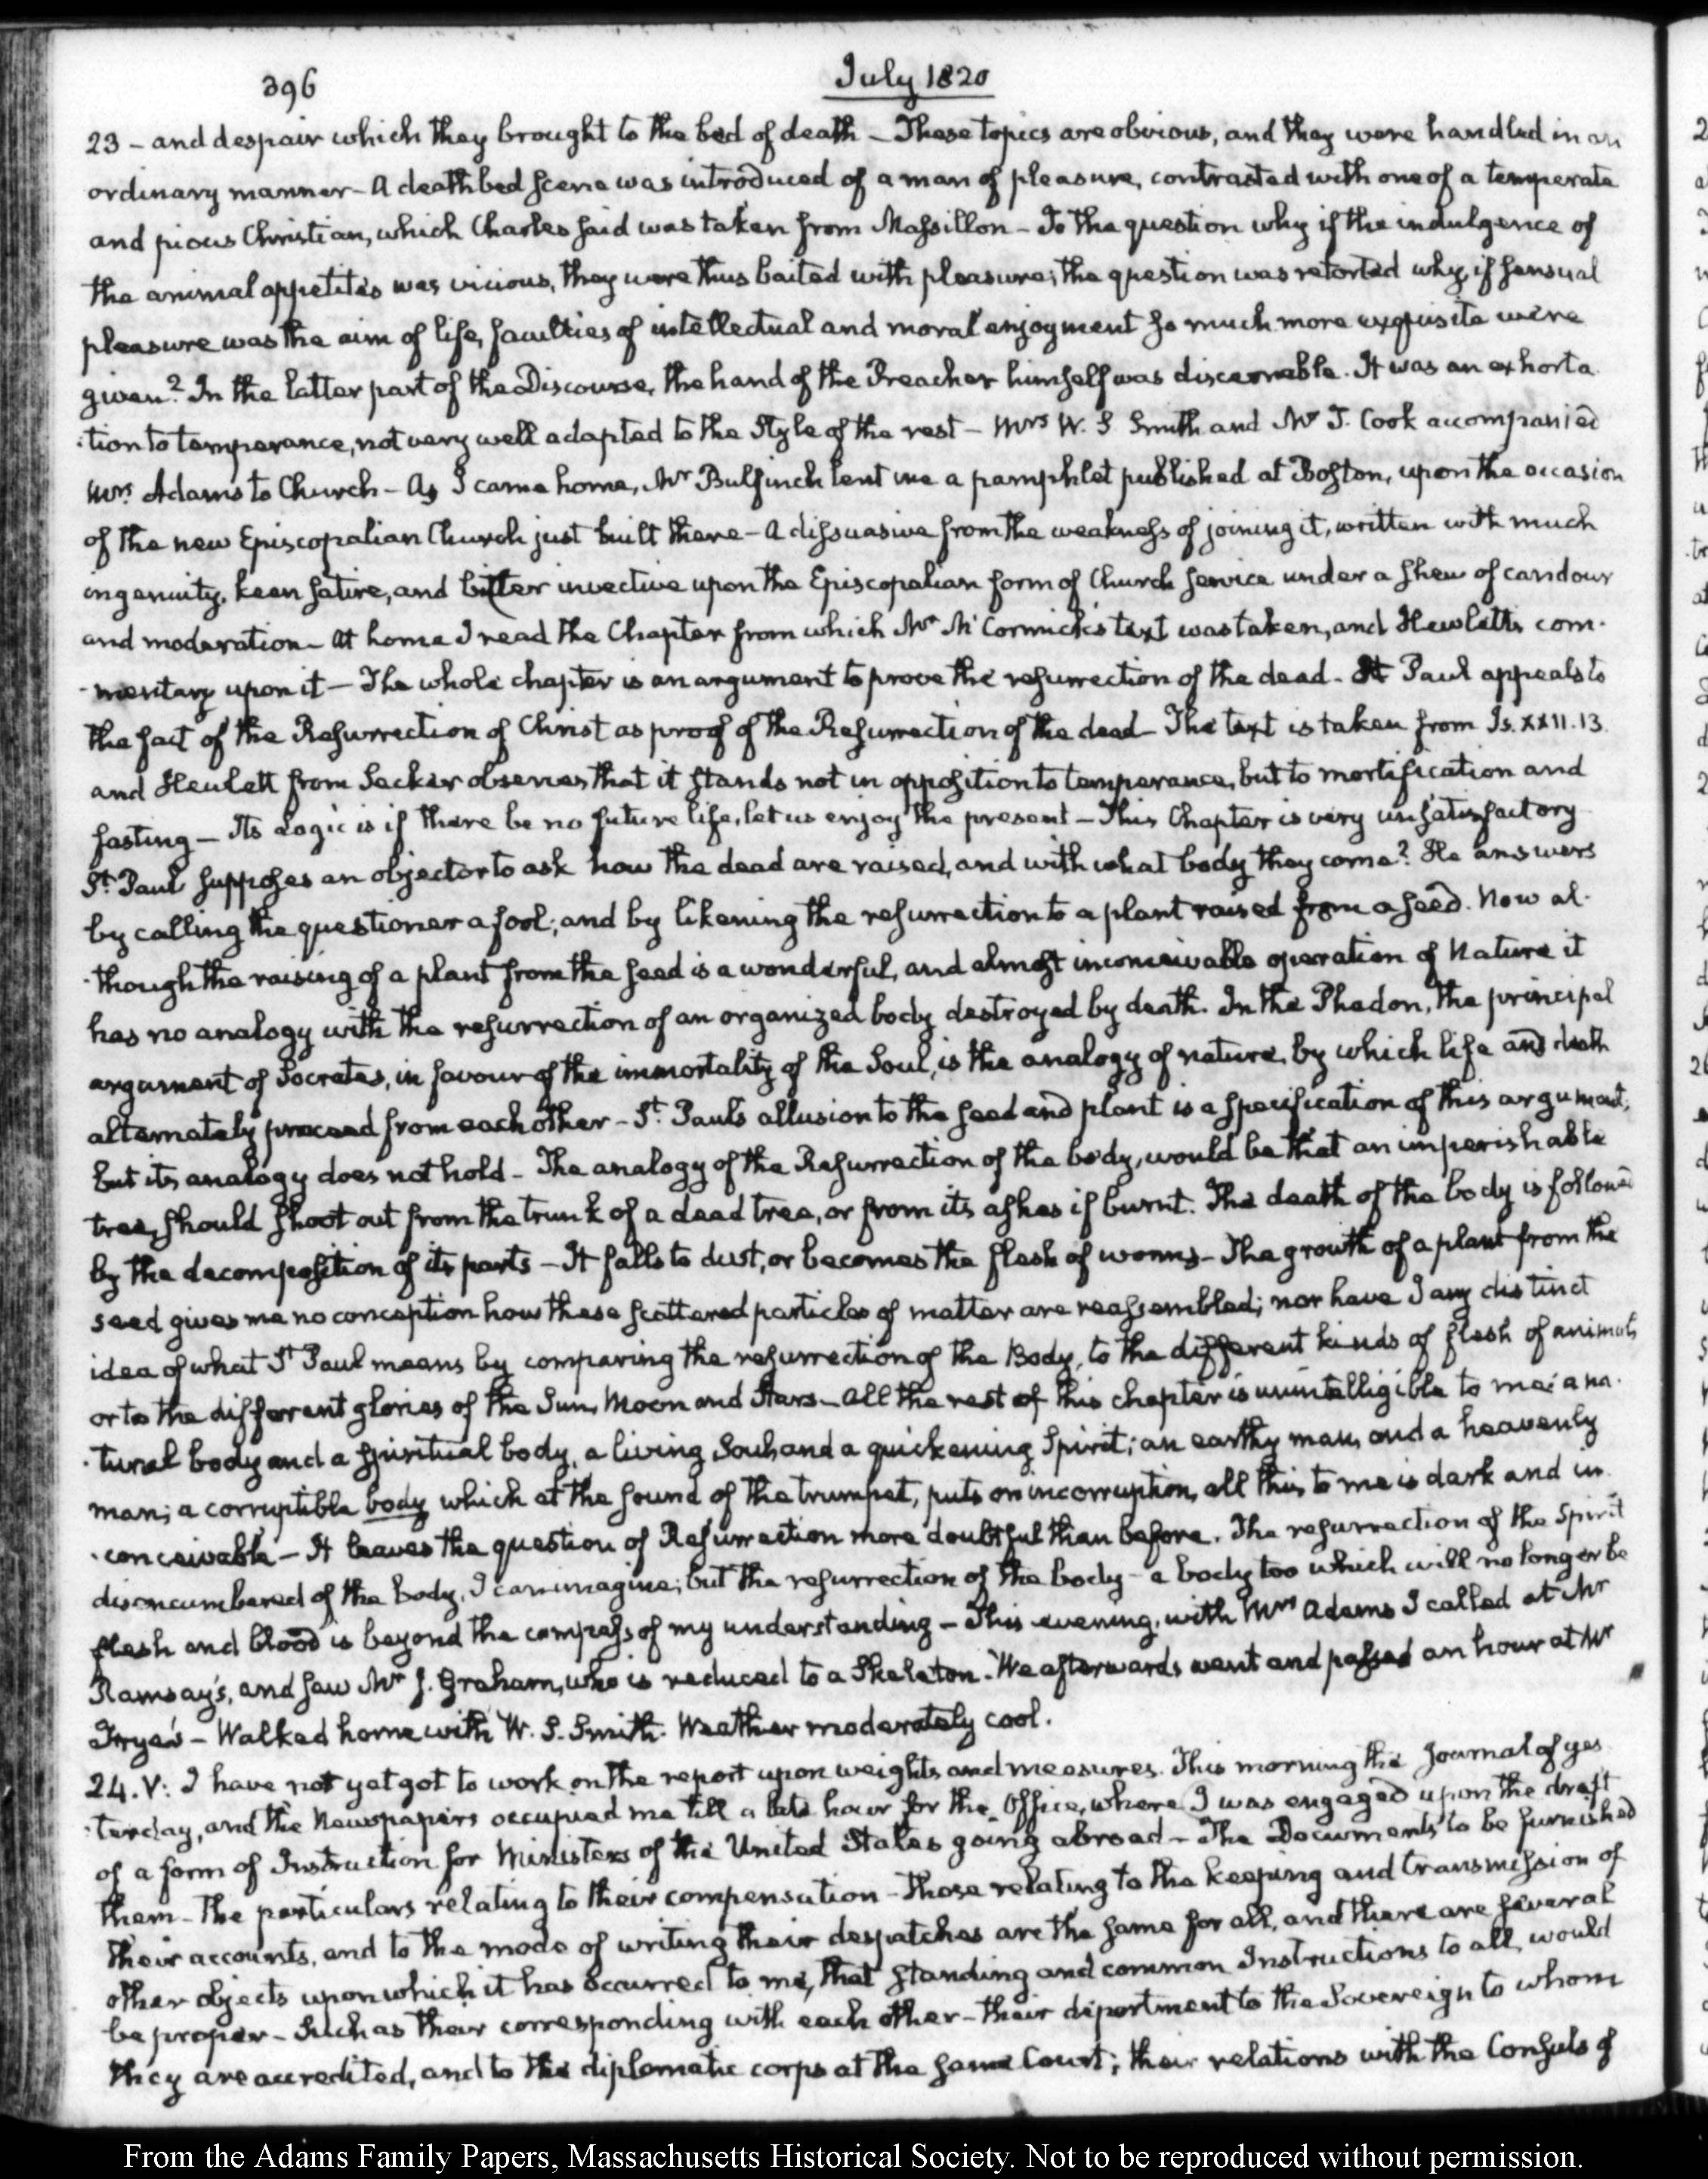 396
July 1820
23 - and despair which they brought to the bed of death - These topics are obvious, and they were handled in an
ordinary manner - A death bed scene was introduced of a man of pleasure, contrasted with one of a temperate
and pious Christian, which Charles said was taken from Massillon - To the question why if the indulgence of
the animal appetites was vicious, they were thus baited with pleasure; the question was retorted why, if sensual
pleasure was the aim of life, faculties of intellectual and moral enjoyment so much more exquisite were
given? In the latter part of the Discourse, the hand of the Preacher himself was discernable. It was an exhorta
:tion to temperance, not very well adapted to the Style of the rest - Mrs W. S Smith and Mr J. Cook accompanied
Mrs Adams to Church - As I came home, Mr Bulfinch lent me a pamphlet published at Boston, upon the occasion
of the new Episcopalian Church just built there - A dissuasive from the weakness of joining it, written with much
ingenuity, keen satire, and bitter invective upon the Episcopalian form of Church service under a shew of candour
and moderation - At home I read the Chapter from which Mr McCormick's text was taken, and Hewlett's com-
-mentary upon it - The whole chapter is an argument to prove the resurrection of the dead - St Paul appeals to
the fact of the Resurrection of Christ as proof of the Resurrection of the dead - The text is taken from Is. XXII. 13.
and Hewlett from Secker observes that it stands not in opposition to temperance, but to mortification and
fasting - Its Logic is if there be no future life, let us enjoy the present - This Chapter is very unsatisfactory
St. Paul supposes an objector to ask how the dead are raised, and with what body they come? He answers
by calling the questioner a fool; and by likening the resurrection to a plant raised from a seed. Now al-
-though the raising of a plant from the seed is a wonderful, and almost inconceivable operation of Nature it
has no analogy with the resurrection of an organized body destroyed by death. In the Phedon, the principal
argument of Socrates, in favour of the immortality of the Soul, is the analogy of nature, by which life and death
alternately proceed from each other - St. Paul's allusion to the seed and plant is a specification of this argument;
but its analogy does not hold - The analogy of the Resurrection of the body, would be that an imperishable
tree, should shoot out from the trunk of a dead tree, or from its ashes if burnt. The death of the body is followed
by the decomposition of its parts - It falls to dust, or becomes the flesh of worms - The growth of a plant from the
seed gives me no conception how these scattered particles of matter are reassembled; nor have I any distinct
idea of what St Paul means by comparing the resurrection of the Body, to the different kinds of flesh of animals,
or to the different glories of the Sun, Moon and Stars - All the rest of this chapter is unintelligible to me: a na-
-tural body and a spiritual body, a living Soul, and a quickening Spirit; an earthy man, and a heavenly
man; a corruptible body which at the sound of the trumpet, puts on incorruption, all this to me is dark and in-
-conceivable - It leaves the question of Resurrection more doubtful than before. The resurrection of the Spirit
disencumbered of the body, I can imagine; but the resurrection of the body - a body too which will no longer be
flesh and blood is beyond the compass of my understanding - This evening, with Mrs Adams I called at Mr
Ramsay's, and saw Mr J. Graham, who is reduced to a Skeleton. We afterwards went and passed an hour at Mr
Frye's - Walked home with W. S. Smith. Weather moderately cool.
24. V: I have not yet got to work on the report upon weights and measures. This morning the Journal of yes
-terday, and the Newspapers occupied me till a late hour for the Office, where I was engaged upon the draft
of a form of Instruction for Ministers of the United States going abroad - The Documents to be furnished
them - The particulars relating to their compensation - Those relating to the keeping and transmission of
their accounts, and to the mode of writing their despatches are the same for all, and there are several
other objects upon which it has occurred to me, that standing and common Instructions to all, would
be proper - Such as their corresponding with each other - their deportment to the Sovereign to whom
they are accredited, and to the diplomatic corps at the same Court; their relations with the Consuls of
From the Adams Family Papers, Massachusetts Historical Society. Not to be reproduced without permission.